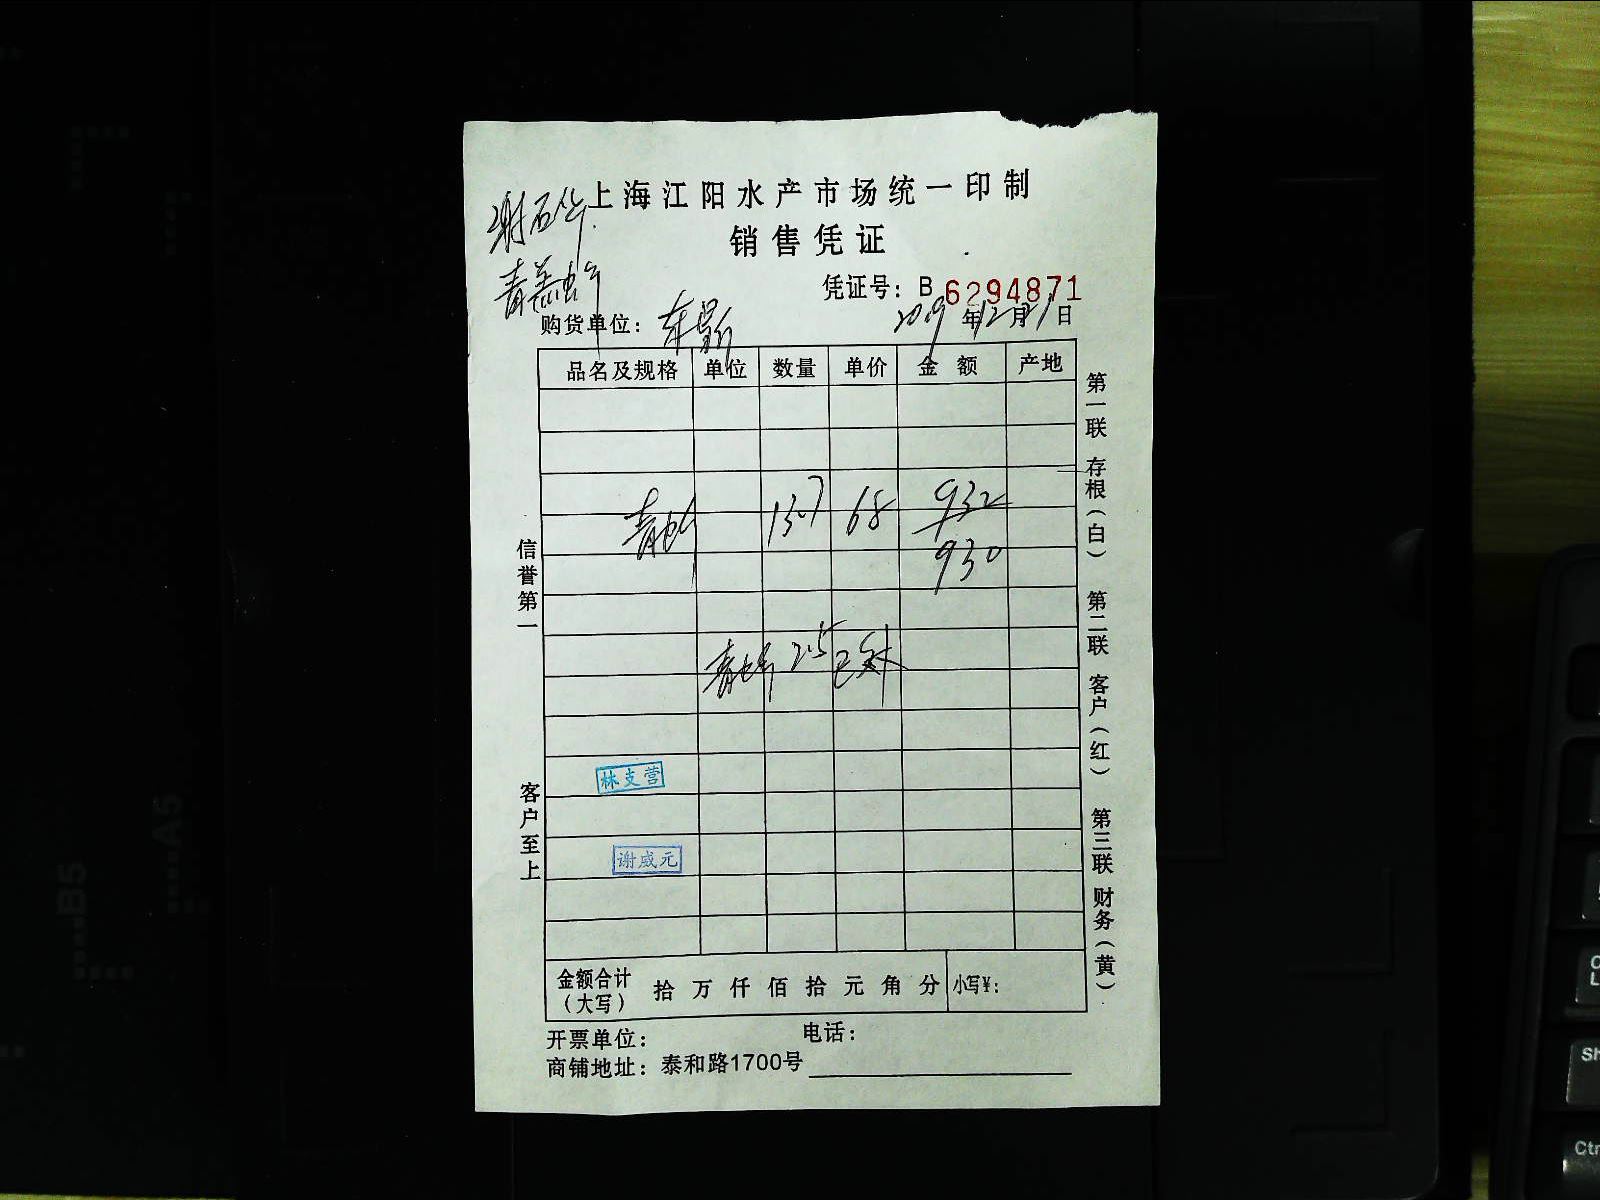 上海江阳水产市场统一印制
谢石华
销售凭证
凭证号：B 6294871
购货单位：
2019年12月21日
品名及规格 单位 数量 单价 金额 产地
青 13.7 68 932
930
青 2.5 已
林支营
谢咸元
金额合计（大写） 拾 万 仟 佰 拾 元 角 分 小写¥：
开票单位： 电话：
商铺地址：泰和路1700号
信誉第一 客户至上
第一联 存根（白） 第二联 客户（红） 第三联 财务（黄）